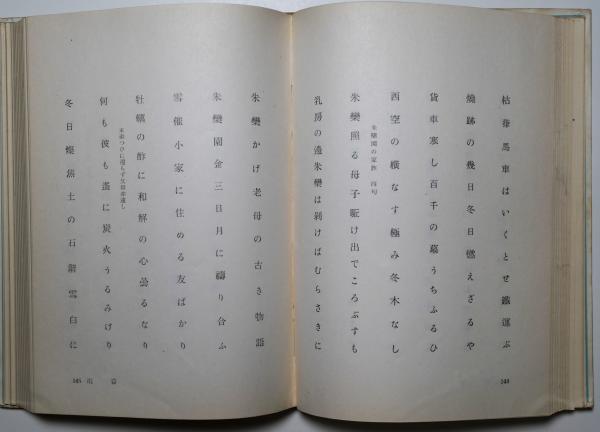 枯葎馬車はいくとせ鐵運ぶ
燒跡の幾日冬日燃えざるや
貨車寒し百千の墓うちふるひ
西空の橫なす極み冬木なし
朱欒園の家族 四句
朱欒照る母子駈け出でころぶすも
乳房の邊朱欒は剥けばむらさきに
144
朱欒かげ老母の古き物語
朱欒園金三日月に禱り合ふ
雪催小家に住める友ばかり
牡蠣の酢に和解の心曇るなり
未歸つひに還らず
何も彼も遙に炭火うるみけり
冬日燦焦土の石階雪白に
145